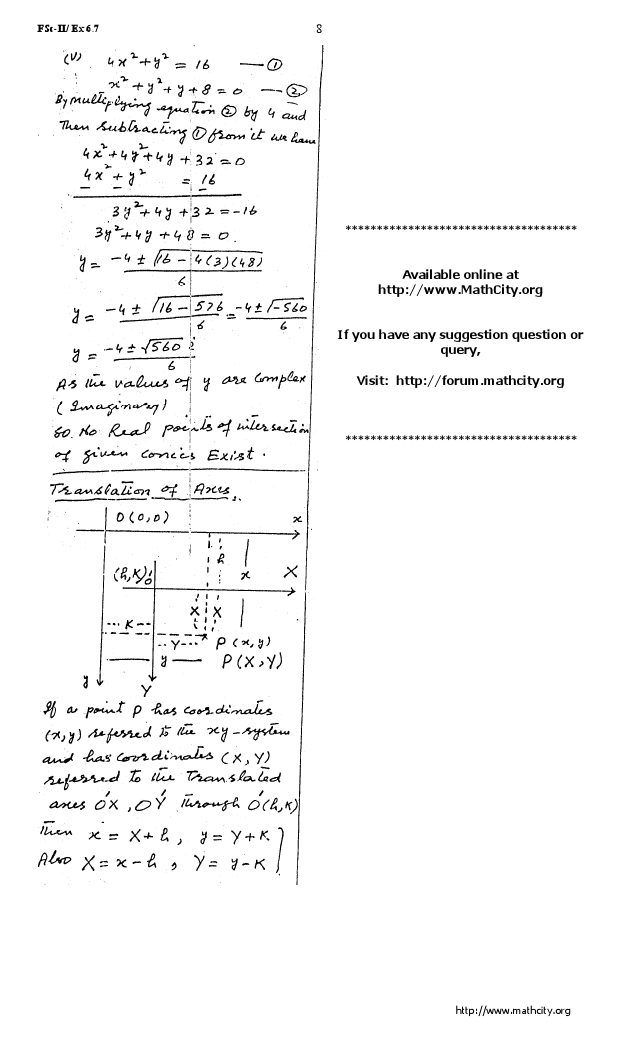 FSc-II/ Ex 6.7
8
(V) 4x²+y² = 16 —①
x²+y²+y+8=0 —②
By multiplying equation ② by 4 and
Then subtracting ① from it we have
4x²+4y²+4y+32=0
4x²+y² = 16
3y²+4y+32=-16
3y²+4y+48=0
y= -4±√16-4(3)(48) / 6
y= -4±√16-576 / 6 = -4±√-560 / 6
y= -4±√560 i / 6
As the values of y are Complex
(Imaginary)
So No Real points of intersection
of given conics Exist.
Translation of Axes.
O(0,0)
x
h
x
(h,K)
O'
X
X
X
K
Y
P(x,y)
y
P(X,Y)
y
Y
If a point P has coordinates
(x,y) referred to the xy-system
and has coordinates (X,Y)
referred to the Translated
axes O'X, O'Y through O'(h,K)
Then x = X+h, y = Y+K
Also X = x-h, Y = y-K
*************************************
Available online at
http://www.MathCity.org
If you have any suggestion question or
query,
Visit: http://forum.mathcity.org
*************************************
http://www.mathcity.org